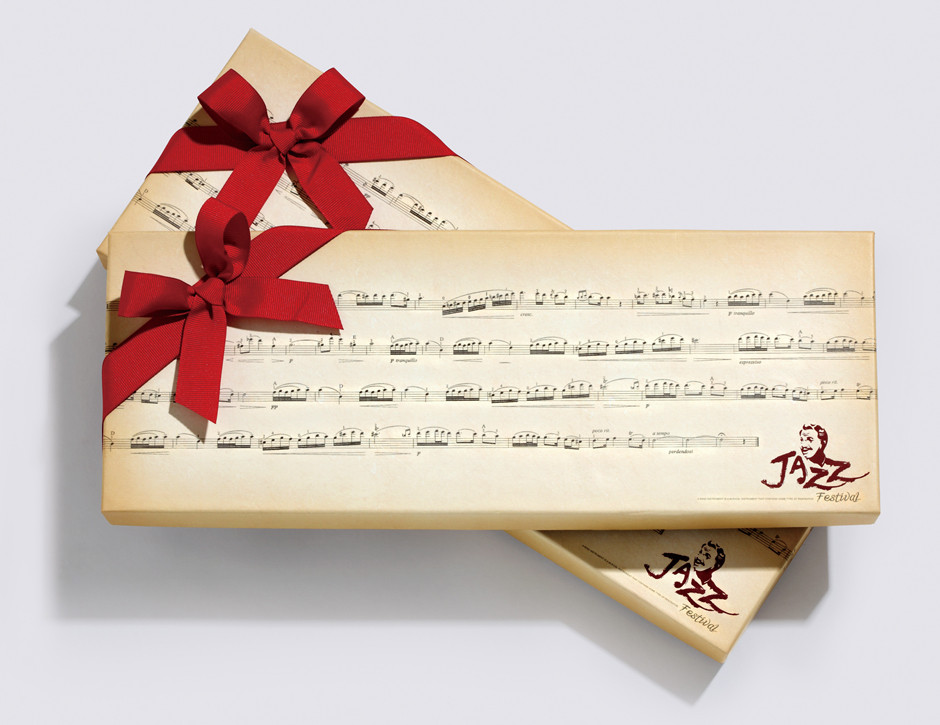 cresc.
p tranquillo
p
p tranquillo
espressivo
pp
p
poco rit.
poco rit.
a tempo
p
perdendosi
JAZZ
Festival
JAZZ
Festival